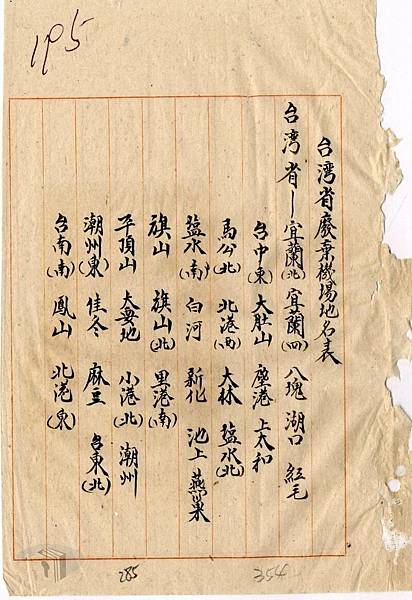 195
台湾省廢棄機場地名表
台湾省—宜蘭(北) 宜蘭(四) 八塊 湖口 紅毛
台中(東) 大肚山 塵港 上太和
馬公(北) 北港(西) 大林 塩水(北)
塩水(南) 白河 新化 池上 燕巢
旗山 旗山(北) 里港(南)
平頂山 大要地 小港(北) 潮州
潮州(東) 佳冬 麻豆 台東(北)
台南(南) 鳳山 北港(東)
285
354